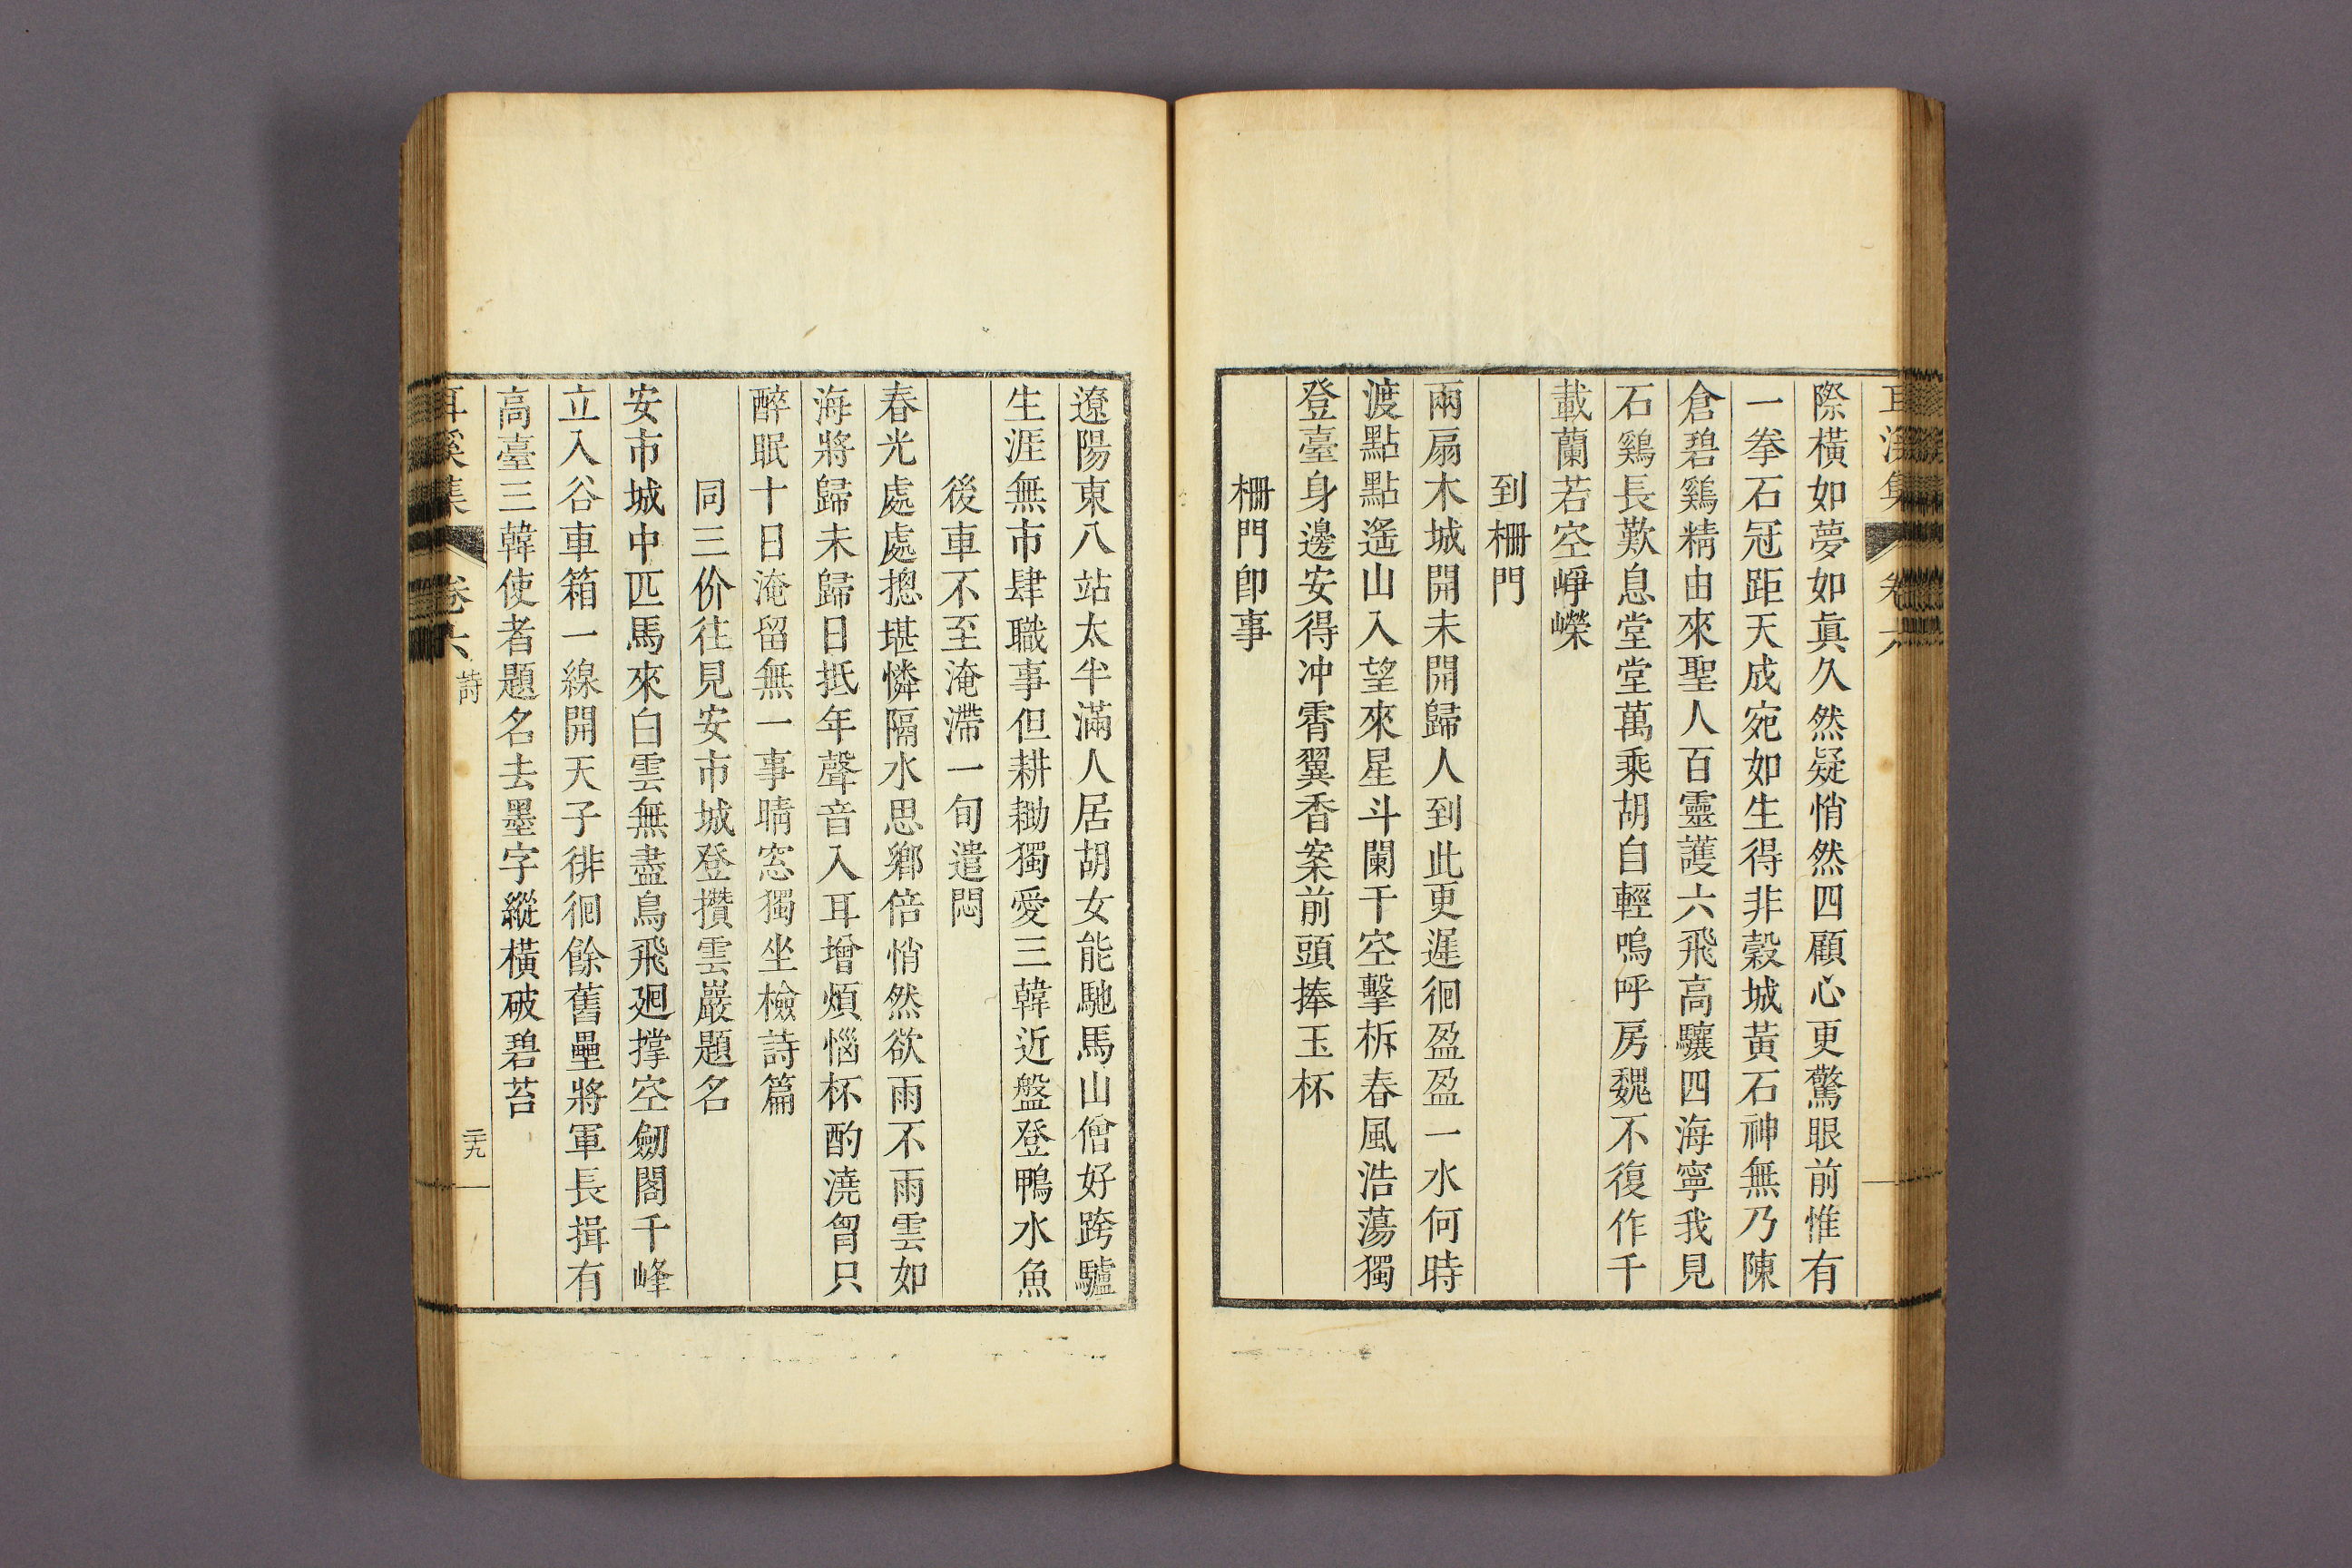 耳溪集 卷六
際橫如夢如眞久然疑悄然四顧心更驚眼前惟有
一拳石冠距天成宛如生得非穀城黃石神無乃陳
倉碧鷄精由來聖人百靈護六飛高驤四海寧我見
石鷄長歎息堂堂萬乘胡自輕嗚呼房魏不復作千
載蘭若空崢嶸
到柵門
兩扇木城開未開歸人到此更遲徊盈盈一水何時
渡點點遙山入望來星斗闌干空擊柝春風浩蕩獨
登臺身邊安得冲霄翼香案前頭捧玉杯
柵門卽事
遼陽東八站太半滿人居胡女能馳馬山僧好跨驢
生涯無市肆職事但耕耡獨愛三韓近盤登鴨水魚
後車不至淹滯一旬遣悶
春光處處摠堪憐隔水思鄕倍悄然欲雨不雨雲如
海將歸未歸日抵年聲音入耳增煩惱杯酌澆胷只
醉眠十日淹留無一事晴窓獨坐檢詩篇
同三价徃見安市城登攢雲巖題名
安市城中匹馬來白雲無盡鳥飛廻撑空劒閣千峰
立入谷車箱一線開天子徘徊餘舊壘將軍長揖有
高臺三韓使者題名去墨字縱橫破碧苔
耳溪集 卷六 詩 二十九